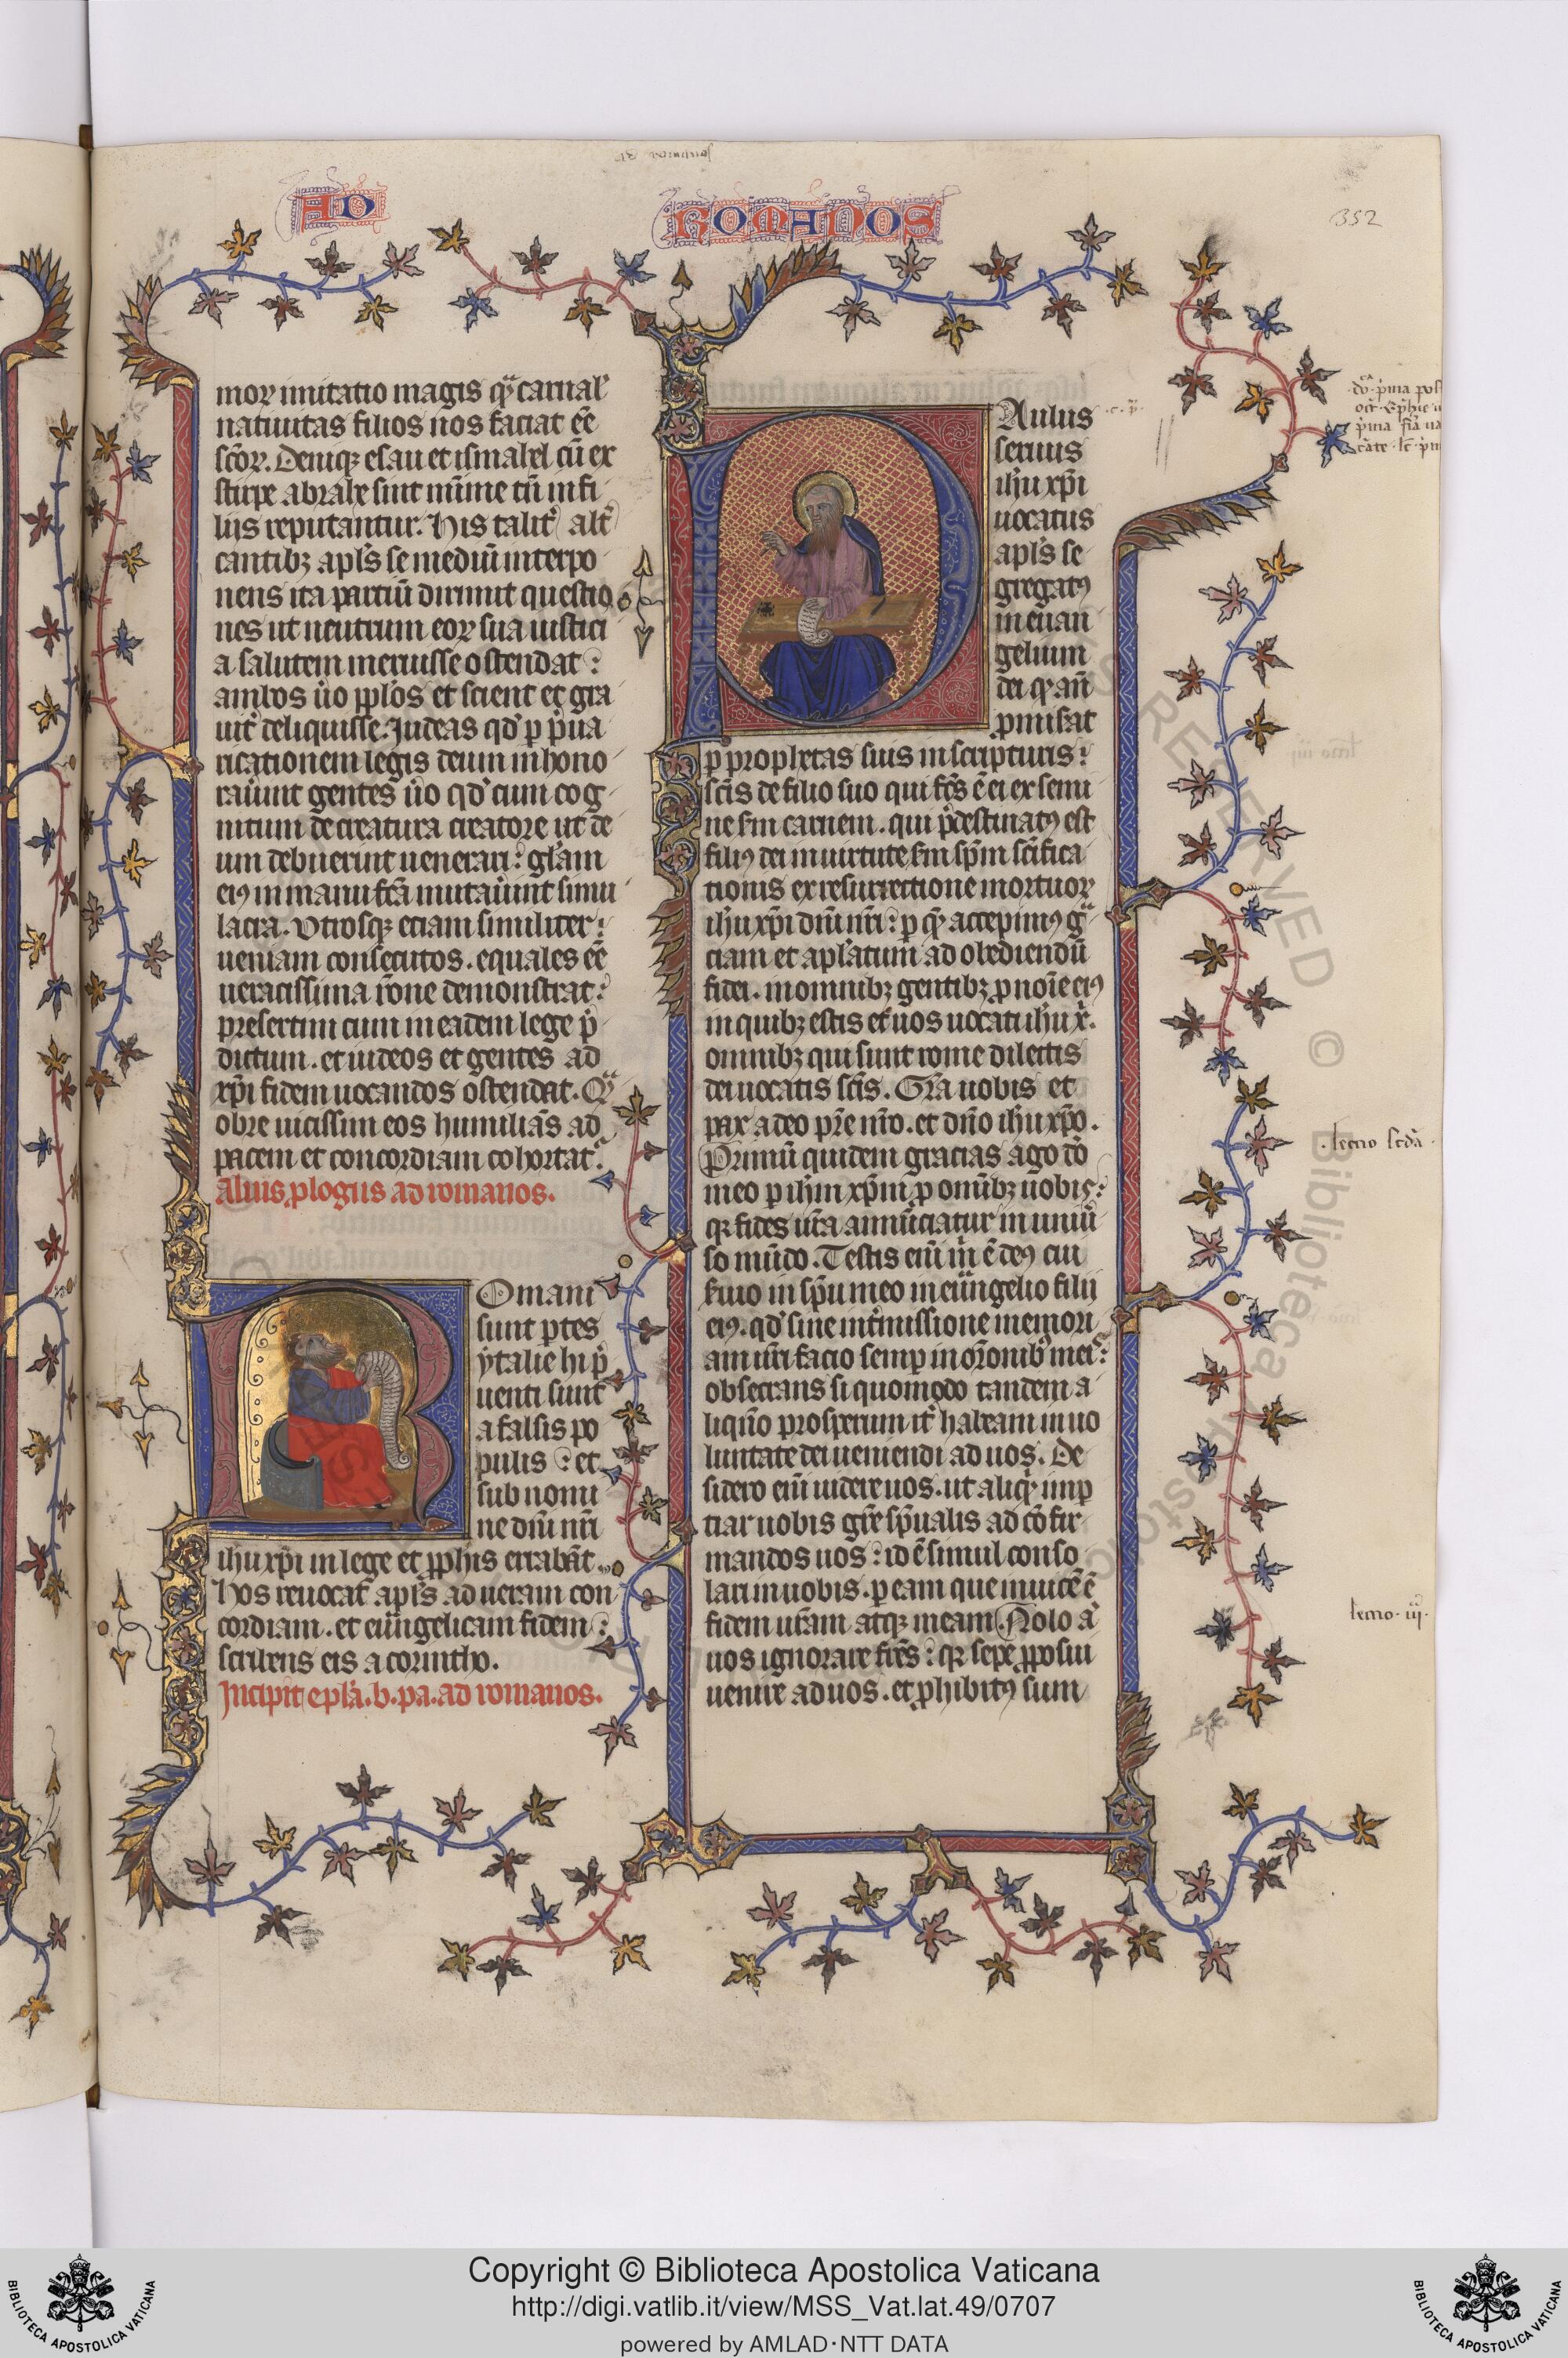 AD ROMANOS
352
moꝝ imitatio magis q̄ carnal'
natiuitas filios nos faciat eē
sc̄oꝝ. Deniqꝫ esau et ismahel cū ex
stirpe abrahe sint mīme tn̄ in fi
liis reputantur. His talit' alt'
cantibꝫ apl's se mediū interpo
nens ita partiū dirimit questio
nes ut neutrum eoꝝ sua iustici
a salutem meruisse ostendat:
ambos ũo ppl'os et scient' et gra
uit' deliquisse. Judeos qd' ꝑ p̄ua
ricationem legis deum inhono
rau̾int gentes ũo qd' cum cog
nitum de creatura creatorē ut de
um debuerint uenerari: gl'iam
eiꝰ in manu fc̄a mutau̾int simu
lacra. Vtrosqꝫ etiam similiter:
ueniam consecutos. equales eē
ueracissima r̄one demonstrat:
presertim cum in eadem lege p̄
dictum. et iudeos et gentes ad
xp̄i fidem uocandos ostendat. Qͣ
obrē uicissim eos humiliās ad
pacem et concordiam cohortat'.
Alius ꝓlogus ad romanos.
ROmani
sunt ꝑtes
ytalie hi p̄
uenti sunt
a falsis po
pulis: et
sub nomi
ne dn̄i nr̄i
ih'u xp̄i in lege et ꝓphis errabāt
Hos reuocat apl's ad ueram con
cordiam. et eu̾ngelicam fidem:
scribens eis a corintho.
Incipit epl'a. b. pa. ad romanos.
PAulus
seruus
ih'u xp̄i
uocatus
apl's se
gregatꝰ
in euan
gelium
dei qͦ an̄
ꝓmisat
ꝑ prophetas suis in scripturis:
sc̄is de filio suo qui fc̄s ē ei ex semi
ne sm̄ carnem. qui p̄destinatꝰ est
filiꝰ dei in uirtute sm̄ sp̄m sc̄ifica
tionis ex resurrectione mortuoꝝ
ih'u xp̄i dn̄i nr̄i: ꝑ qͫ accepimꝰ gͣ
ciam et apl'atum ad obediendū
fidei. in omnibꝫ gentibꝫ ꝓ noīe eiꝰ
in quibꝫ estis et uos uocati ih'u x̄.
omnibꝫ qui sunt rome dilectis
dei uocatis sc̄is. Gr̄a uobis et
pax a deo pr̄e nr̄o. et dn̄o ih'u xp̄o.
Primū quidem gracias ago dō
meo ꝑ ih'm xp̄m ꝓ omībꝫ uobis:
qꝛ fides ur̄a annūciatur in uniu̾
so mūdo. Testis eni m̄ ē deꝰ cui
s̾uio in sp̄u meo in eu̾ngelio filii
eiꝰ. qd' sine int̾missione memori
am uri facio semꝑ in or̄onibꝰ meis:
obsecrans si quomodo tandem a
liqn̄o prosperum it' habeam in uo
luntate dei ueniendi ad uos. De
sidero eni uidere uos. ut aliqͥ imꝑ
tiar uobis gr̄e sp̄ualis ad cōfir
mandos uos: id ē simul conso
lari in uobis. ꝑ eam que inuicē ē
fidem ur̄am atqꝫ meam. Nolo a
uos ignorare fr̄es: qꝛ sepe ꝓposui
uenire ad uos. et ꝓhibitꝰ sum
.lectio scd'a.
lectio. iij.
Copyright © Biblioteca Apostolica Vaticana
http://digi.vatlib.it/view/MSS_Vat.lat.49/0707
powered by AMLAD·NTT DATA
BIBLIOTECA APOSTOLICA VATICANA
BIBLIOTECA APOSTOLICA VATICANA